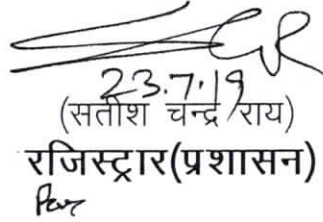 23.7.19
(सतीश चन्द्र राय)
रजिस्ट्रार(प्रशासन)